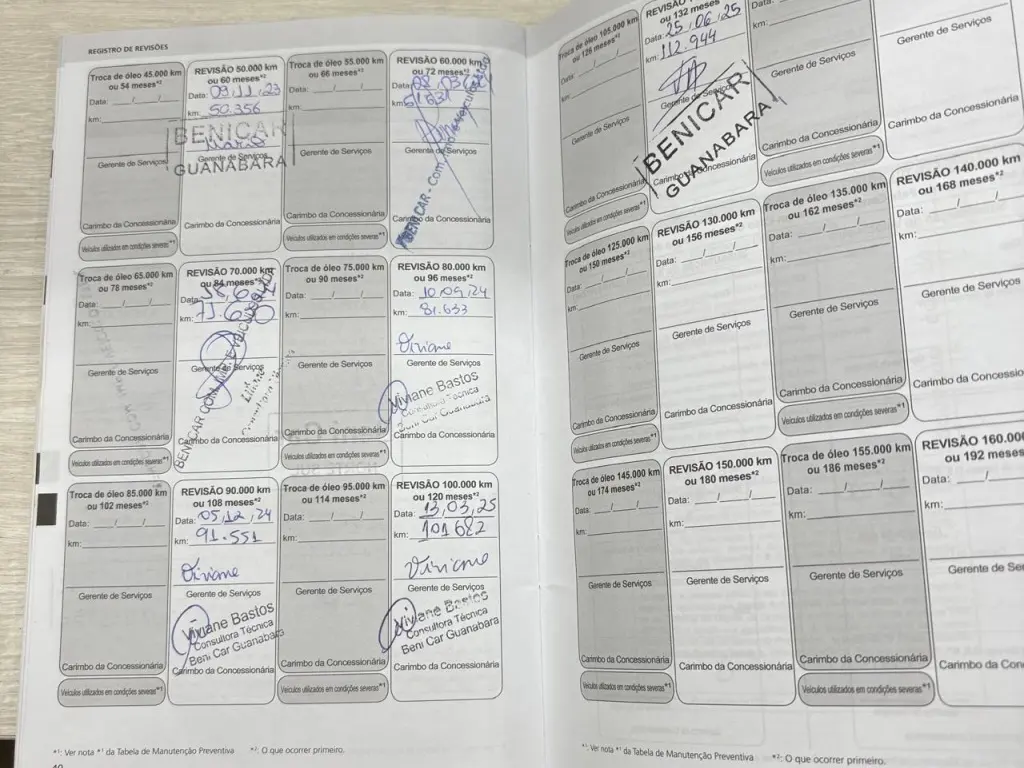 REGISTRO DE REVISÕES
Troca de óleo 45.000 km
ou 54 meses*²
Data: ___/___/___
km:
Gerente de Serviços
Carimbo da Concessionária
Veículos utilizados em condições severas*¹
REVISÃO 50.000 km
ou 60 meses*²
Data: 09/11/23
km: 50.356
BENICAR
Gerente de Serviços
GUANABARA
Carimbo da Concessionária
Troca de óleo 55.000 km
ou 66 meses*²
Data: ___/___/___
km:
Gerente de Serviços
Carimbo da Concessionária
Veículos utilizados em condições severas*¹
REVISÃO 60.000 km
ou 72 meses*²
Data:
km:
Gerente de Serviços
BENICAR - Com.
Carimbo da Concessionária
Troca de óleo 65.000 km
ou 78 meses*²
Data: ___/___/___
km:
Gerente de Serviços
Carimbo da Concessionária
Veículos utilizados em condições severas*¹
REVISÃO 70.000 km
ou 84 meses*²
Data:
km:
Gerente de Serviços
BENICAR COM
Carimbo da Concessionária
Troca de óleo 75.000 km
ou 90 meses*²
Data: ___/___/___
km:
Gerente de Serviços
Carimbo da Concessionária
Veículos utilizados em condições severas*¹
REVISÃO 80.000 km
ou 96 meses*²
Data: 10/09/24
km: 81.633
Viviane
Gerente de Serviços
Viviane Bastos
Consultora Técnica
Beni Car Guanabara
Carimbo da Concessionária
Troca de óleo 85.000 km
ou 102 meses*²
Data: ___/___/___
km:
Gerente de Serviços
Carimbo da Concessionária
Veículos utilizados em condições severas*¹
REVISÃO 90.000 km
ou 108 meses*²
Data: 05/12/24
km: 91.551
Viviane
Gerente de Serviços
Viviane Bastos
Consultora Técnica
Beni Car Guanabara
Carimbo da Concessionária
Troca de óleo 95.000 km
ou 114 meses*²
Data: ___/___/___
km:
Gerente de Serviços
Carimbo da Concessionária
Veículos utilizados em condições severas*¹
REVISÃO 100.000 km
ou 120 meses*²
Data: 13/03/25
km: 101682
Viviane
Gerente de Serviços
Viviane Bastos
Consultora Técnica
Beni Car Guanabara
Carimbo da Concessionária
*¹: Ver nota *¹ da Tabela de Manutenção Preventiva *²: O que ocorrer primeiro.
Troca de óleo 105.000 km
ou 126 meses*²
Data: ___/___/___
km:
Gerente de Serviços
Carimbo da Concessionária
Veículos utilizados em condições severas*¹
ou 132 meses*²
Data: 25/06/25
km: 112.944
Gerente de Serviços
BENICAR
GUANABARA
Carimbo da Concessionária
km:
Gerente de Serviços
Carimbo da Concessionária
Veículos utilizados em condições severas*¹
km:
Gerente de Serviços
Carimbo da Concessionária
Troca de óleo 125.000 km
ou 150 meses*²
Data: ___/___/___
km:
Gerente de Serviços
Carimbo da Concessionária
Veículos utilizados em condições severas*¹
REVISÃO 130.000 km
ou 156 meses*²
Data: ___/___/___
km:
Gerente de Serviços
Carimbo da Concessionária
Troca de óleo 135.000 km
ou 162 meses*²
Data: ___/___/___
km:
Gerente de Serviços
Carimbo da Concessionária
Veículos utilizados em condições severas*¹
REVISÃO 140.000 km
ou 168 meses*²
Data: ___/___/___
km:
Gerente de Serviços
Carimbo da Concessioná
Troca de óleo 145.000 km
ou 174 meses*²
Data: ___/___/___
km:
Gerente de Serviços
Carimbo da Concessionária
Veículos utilizados em condições severas*¹
REVISÃO 150.000 km
ou 180 meses*²
Data: ___/___/___
km:
Gerente de Serviços
Carimbo da Concessionária
Troca de óleo 155.000 km
ou 186 meses*²
Data: ___/___/___
km:
Gerente de Serviços
Carimbo da Concessionária
Veículos utilizados em condições severas*¹
REVISÃO 160.00
ou 192 meses
Data: ___/___
km:
Gerente de Se
Carimbo da Con
*¹: Ver nota *¹ da Tabela de Manutenção Preventiva *²: O que ocorrer primeiro.